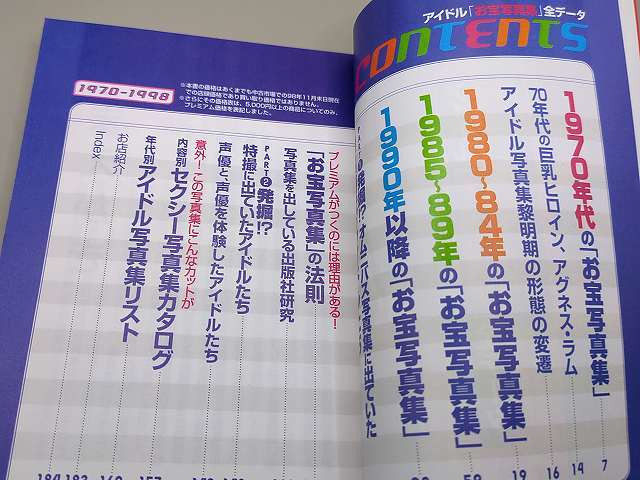 アイドル「お宝写真集」全データ
CONTENTS
1970年代の「お宝写真集」
7
70年代の巨乳ヒロイン、アグネス・ラム
14
アイドル写真集黎明期の形態の変遷
16
1980~84年の「お宝写真集」
19
1985~89年の「お宝写真集」
59
1990年以降の「お宝写真集」
発掘!?オムニバス写真集に出ていた
1970-1998
※本書の価格はあくまでも中古市場での98年11月末日現在
での店頭価格であり買い取り価格ではありません。
※さらにその価格表は、5,000円以上の商品についてのみ、
プレミアム価格を表記しました。
プレミアムがつくのには理由がある!
「お宝写真集」の法則
写真集を出している出版社研究
PART❷発掘!?
特撮に出ていたアイドルたち
声優と、声優を体験したアイドルたち
意外!この写真集にこんなカットが
内容別セクシー写真集カタログ
157
年代別アイドル写真集リスト
160
お店紹介
183
Index
184